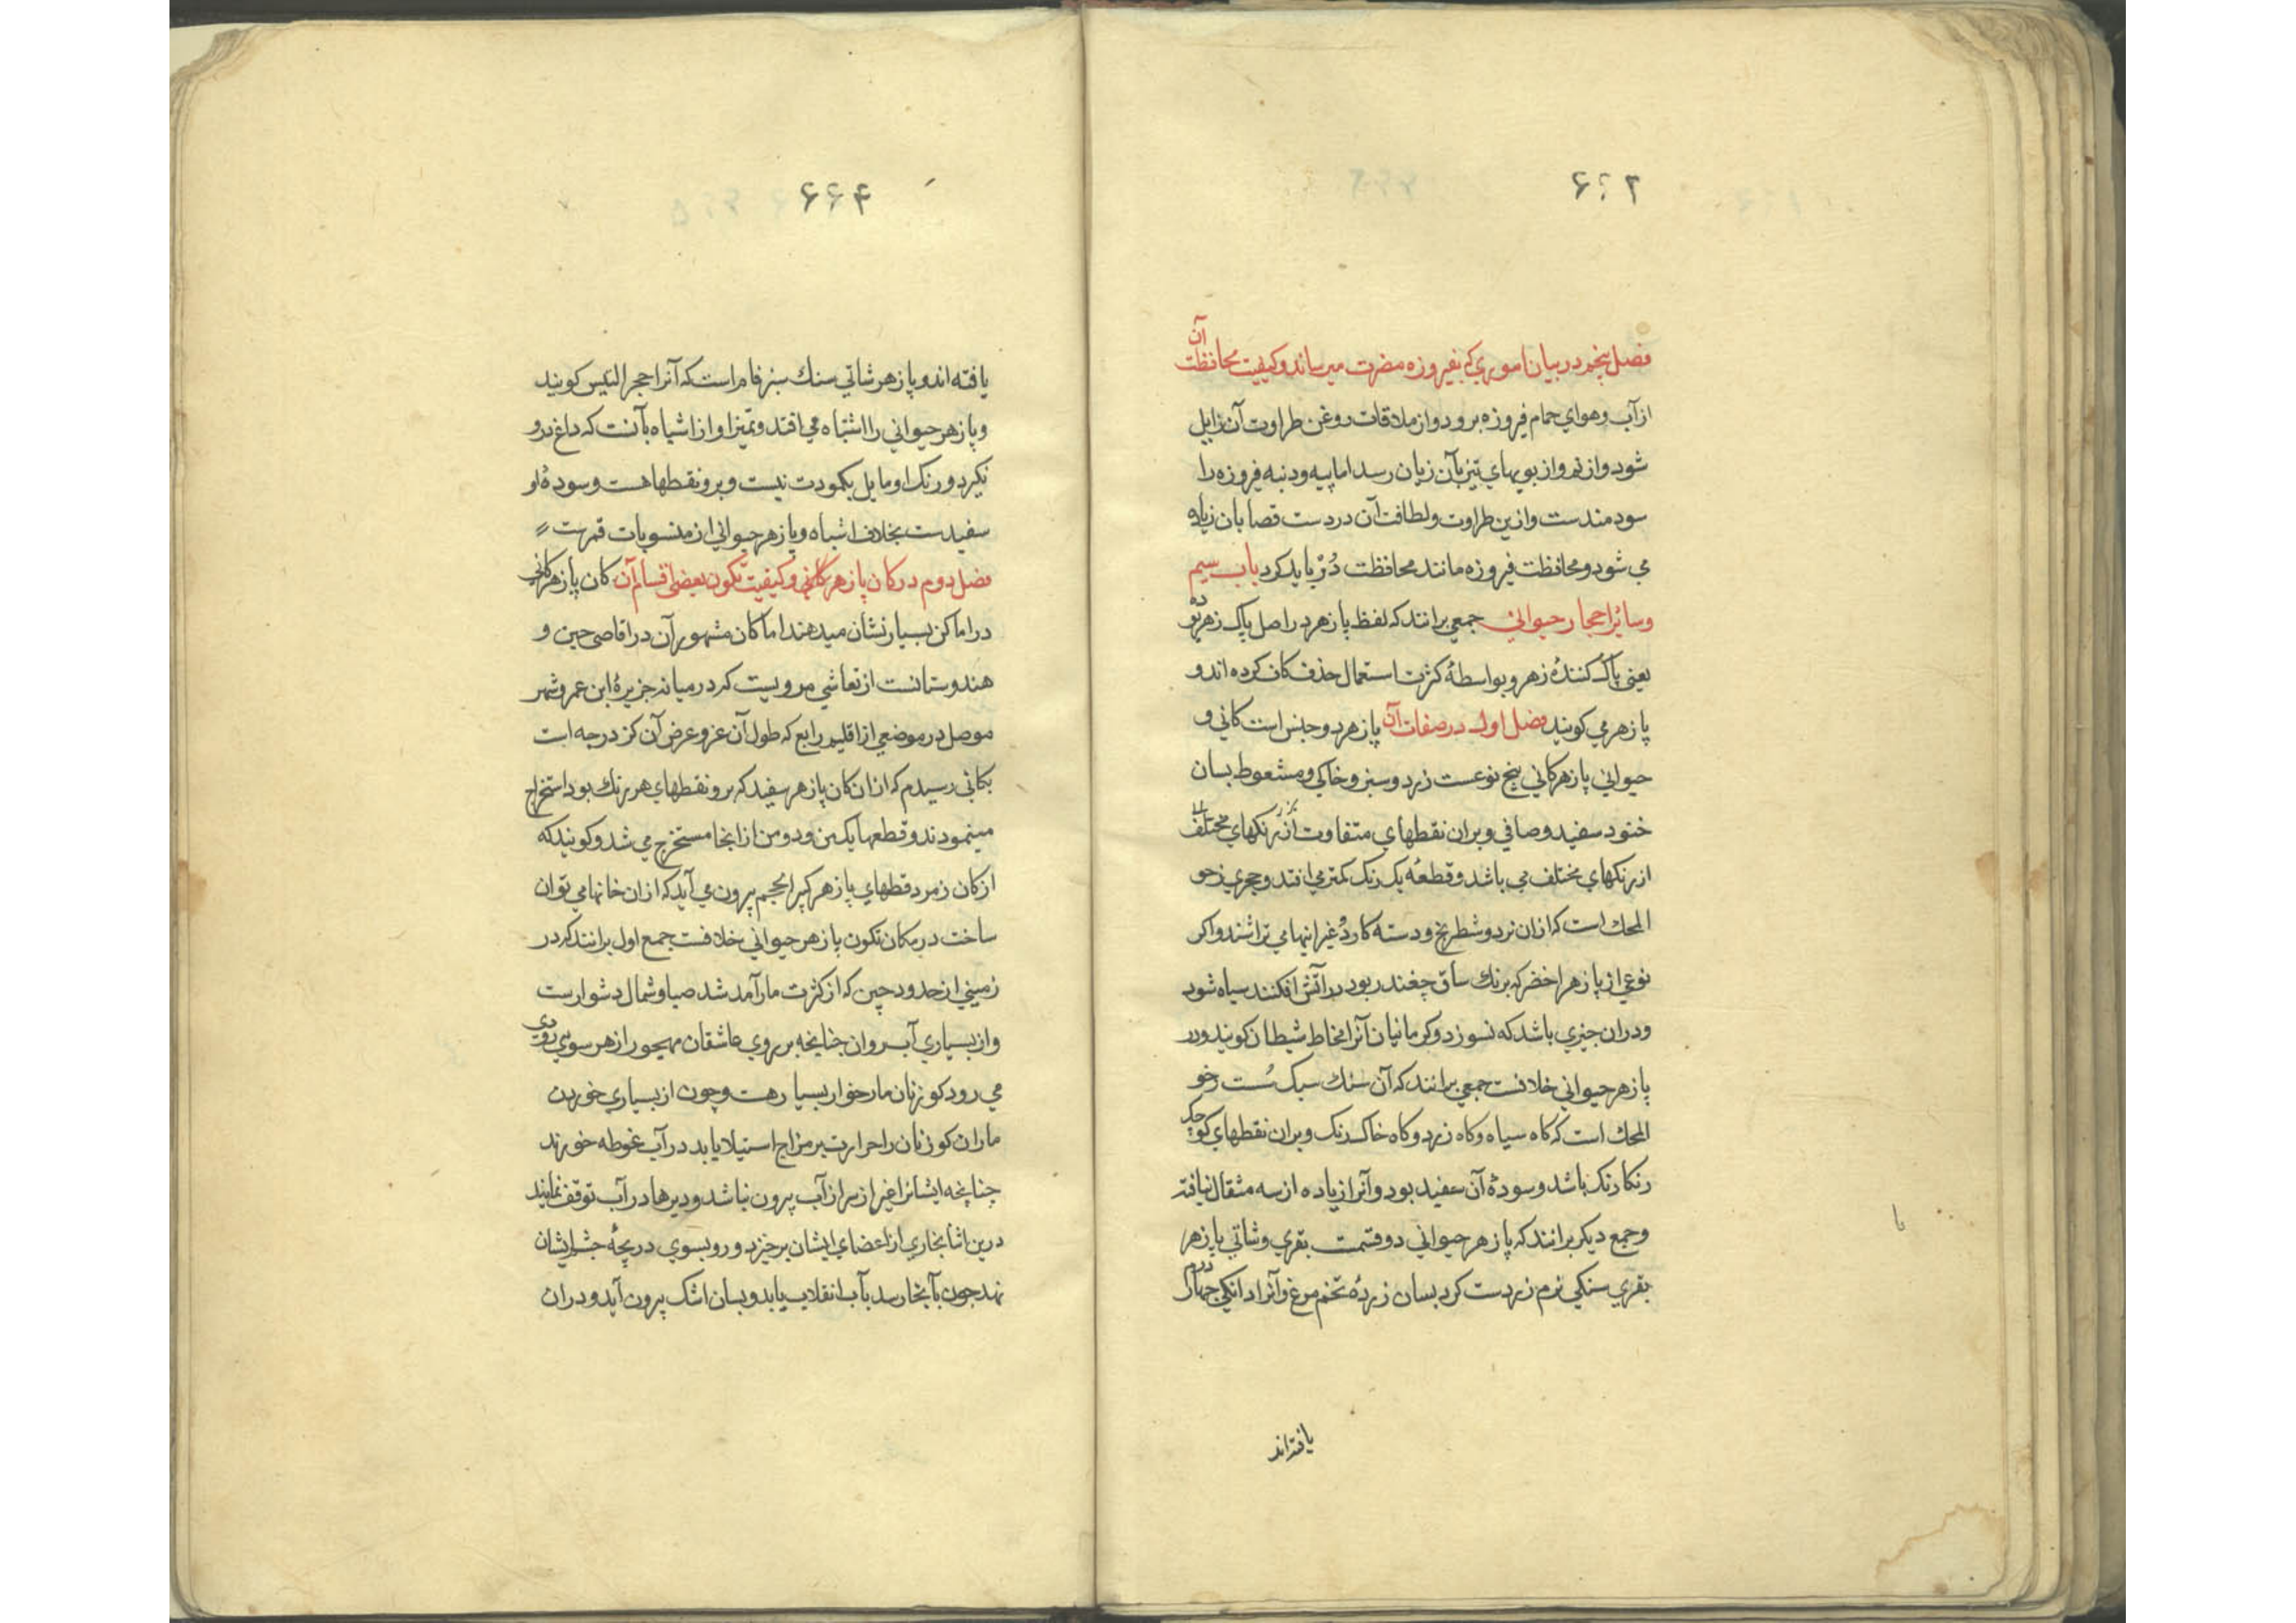 ۶؟۲
فصل پنجم در بیان اموری که بفیروزه مضرت میرساند و کیفیت محافظت آن
از آب و هوای حمام فیروزه برود و از ملاقات روغن طراوت آن زایل
شود و از نم و از بویهای تیز بآن زیان رسد اما پیه و دنبه فیروزه را
سودمندست و ازین طراوت و لطافت آن در دست قصابان زیاده
می شود و محافظت فیروزه مانند محافظت دُرّ باید کرد باب سیم
وسائر احجار حیوانی جمعی برانند که لفظ پازهر در اصل پاک زهر بوده
یعنی پاک کنندهٔ زهر و بواسطهٔ کثرت استعمال حذف کاف کرده اند و
پازهر می کویند فصل اول در صفات آن پازهر دو جنس است کانی و
حیوانی پازهر کانی پنج نوعست زرد و سبز و خاکی و مشعوط بسان
ختو د سفید و صافی و بران نقطهای متفاوت از رنکهای مختلف
از رنکهای مختلف می باشد و قطعهٔ یک رنک کمتر می افتد و حجری زخو
المحك است که ازان نرد و شطرنج و دسته کارد و غیر اینها می تراشند و اکر
نوعی از پازهر اخضر که برنك ساق چغندر بود در آتش افکنند سیاه شود
و دران چیزی باشد که نسوزد و کرمانیان آنرا مخاط شیطان کویند و در
پازهر حیوانی خلافست جمعی برانند که آن سنك سبک سُست رخو
المحك است که کاه سیاه و کاه زرد و کاه خاک رنک و بران نقطهای کوچک
رنکارنک باشد و سودهٔ آن سفید بود و آنرا زیاده از سه مثقال نیافته
و جمع دیکر برانند که پازهر حیوانی دو قسمت بقری و شاتی پازهر
بقری سنکی نرم زردست کرد بسان زردهٔ تخم مرغ و آنرا دانکی چهار درم
یافته اند
۶۶۴
یافته اند و پازهر شاتی سنك سبز فام است که آنرا حجر التیس کویند
و پازهر حیوانی را اشتباه می افتد و تمیز او از اشباه بآنست که داغ برو
نکیرد و رنک او مایل بکمودت نیست و برو نقطها هست و سودهٔ او
سفیدست بخلاف اشباه و پازهر حیوانی از منسوبات قمرست
فصل دوم در کان پازهر کانی و کیفیت تکون بعضی اقسام آن کان پازهر کانی
در اماکن بسیار نشان میدهند اما کان مشهور آن در اقاصی چین و
هندوستانست از نعاشی مرویست که در میانه جزیرهٔ ابن عمر و شهر
موصل در موضعی از اقلیم رابع که طول آن عز و عرض آن کز درجه است
بکانی رسیدم که ازان کان پازهر سفید که برو نقطهای هر رنك بود استخراج
مینمودند و قطعها یکمن و دو من از انجا مستخرج می شد و کویند که
از کان زمرد قطهای پازهر کبیر الحجم بیرون می آید که ازان خانها می توان
ساخت در مکان تکون پازهر حیوانی خلافست جمع اول برانند که در
زمینی از حدود چین که از کثرت مار آمد شد صبا و شمال دشوارست
و از بسیاری آب روان چنانچه بر روی عاشقان مهجور از هر سوی رودی
می رود کوزنان مارخوار بسیار هست و چون از بسیاری خوردن
ماران کوزنان را حرارت بر مزاج استیلا یابد در آب غوطه خورند
چنانچه ایشانرا غیر از سر از آب بیرون نباشد و دیرها در آب توقف نمایند
درین اثنا بخاری از اعضای ایشان برخیزد و رو بسوی دریچهٔ چشم ایشان
نهد چون بآنجا رسد بآب انقلاب یابد و بسان اشک بیرون آید و دران